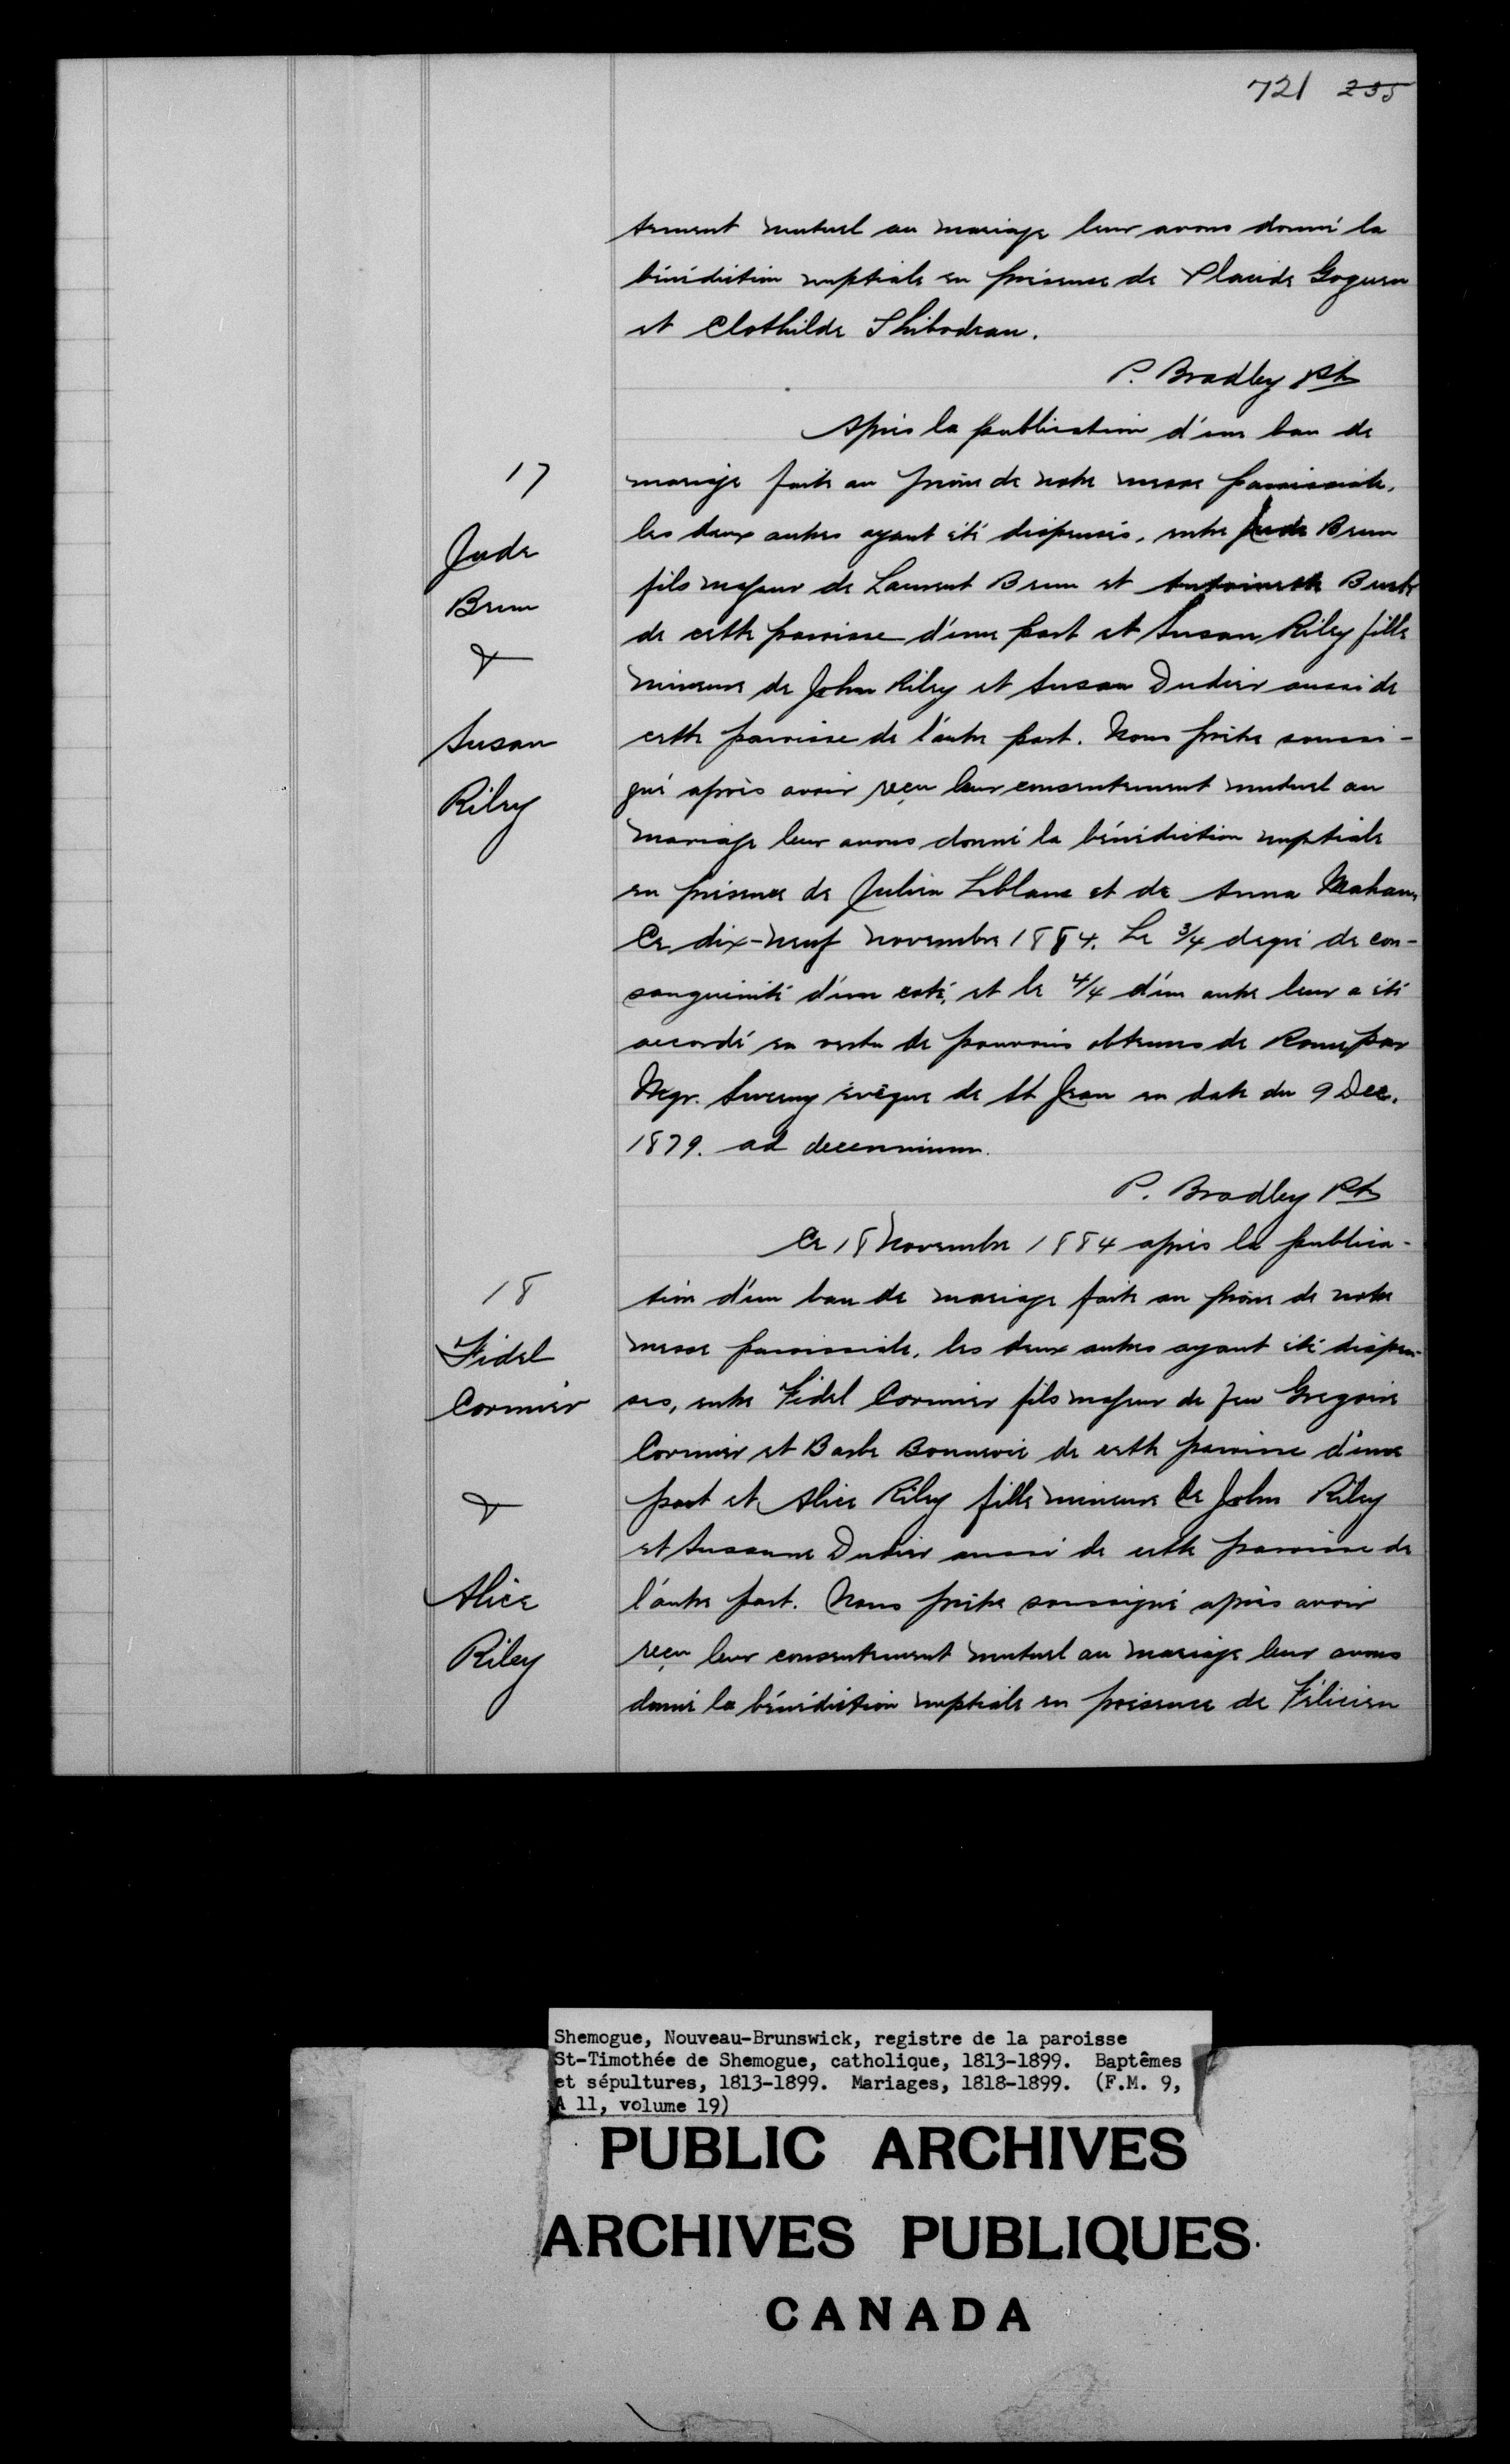 721 235
tement mutuel au mariage leur avons donné la
bénédiction nuptiale en présence de Placide Goguen
et Clothilde Thibodeau.
P. Bradley Pt
Après la publication d'un ban de
17
mariage faite au prône de notre messe paroissiale,
les deux autres ayant été dispensés, entre Jude Brun
Jude
Brun
&
Susan
Riley
fils majeur de Laurent Brun et Antoinette
de cette paroisse d'une part et Susan Riley fille
mineure de John Riley et Susan Dudier aussi de
cette paroisse de l'autre part. Nous prêtre soussi-
gné après avoir reçu leur consentement mutuel au
mariage leur avons donné la bénédiction nuptiale
en présence de Julien Leblanc et de Anna
Ce dix-neuf novembre 1884. Le 3/4 degré de con-
sanguinité d'un coté, et le 4/4 d'un autre leur a été
accordé en vertu de pouvoirs obtenus de Rome par
Mgr. Sweeny évêque de St Jean en date du 9 Dec.
1879. ad decennium.
P. Bradley Pt
Ce 18 Novembre 1884 après la publica-
18
tion d'un ban de mariage faite au prône de notre
messe paroissiale, les deux autres ayant été dispen-
Fidel
Cormier
&
Alice
Riley
sés, entre Fidel Cormier fils majeur de feu Gregoire
Cormier et Barbe Bonnevie de cette paroisse d'une
part et Alice Riley fille mineure de John Riley
et Susanne Dudier aussi de cette paroisse de
l'autre part. Nous prêtre soussigné après avoir
reçu leur consentement mutuel au mariage leur avons
donné la bénédiction nuptiale en présence de Félicien
Shemogue, Nouveau-Brunswick, registre de la paroisse
St-Timothée de Shemogue, catholique, 1813-1899. Baptêmes
et sépultures, 1813-1899. Mariages, 1818-1899. (F.M. 9,
A 11, volume 19)
PUBLIC ARCHIVES
ARCHIVES PUBLIQUES
CANADA